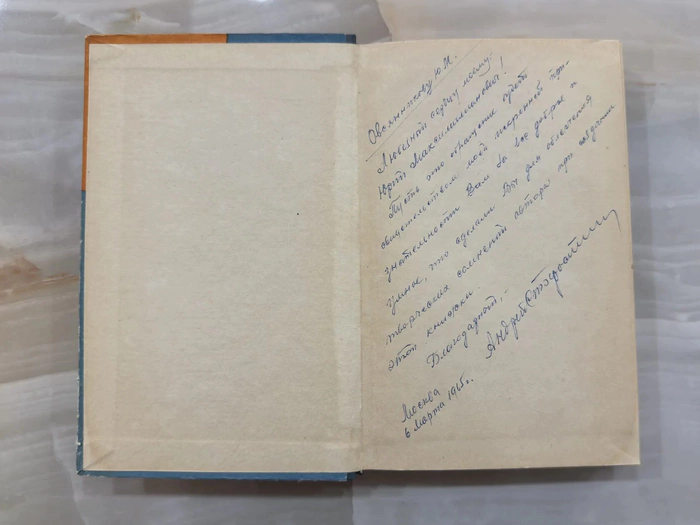 Овсянникову Ю.М.
Любезный сердцу моему
Юрий Максимилианович!
Пусть это обращение будет
свидетельством моей искренней при-
знательности Вам за все доброе и
умное, что сделали Вы для облегчения
творческих сомнений автора при создании
этой книжки.
Благодарный, -
Андрей
Москва
6 марта 1965 г.